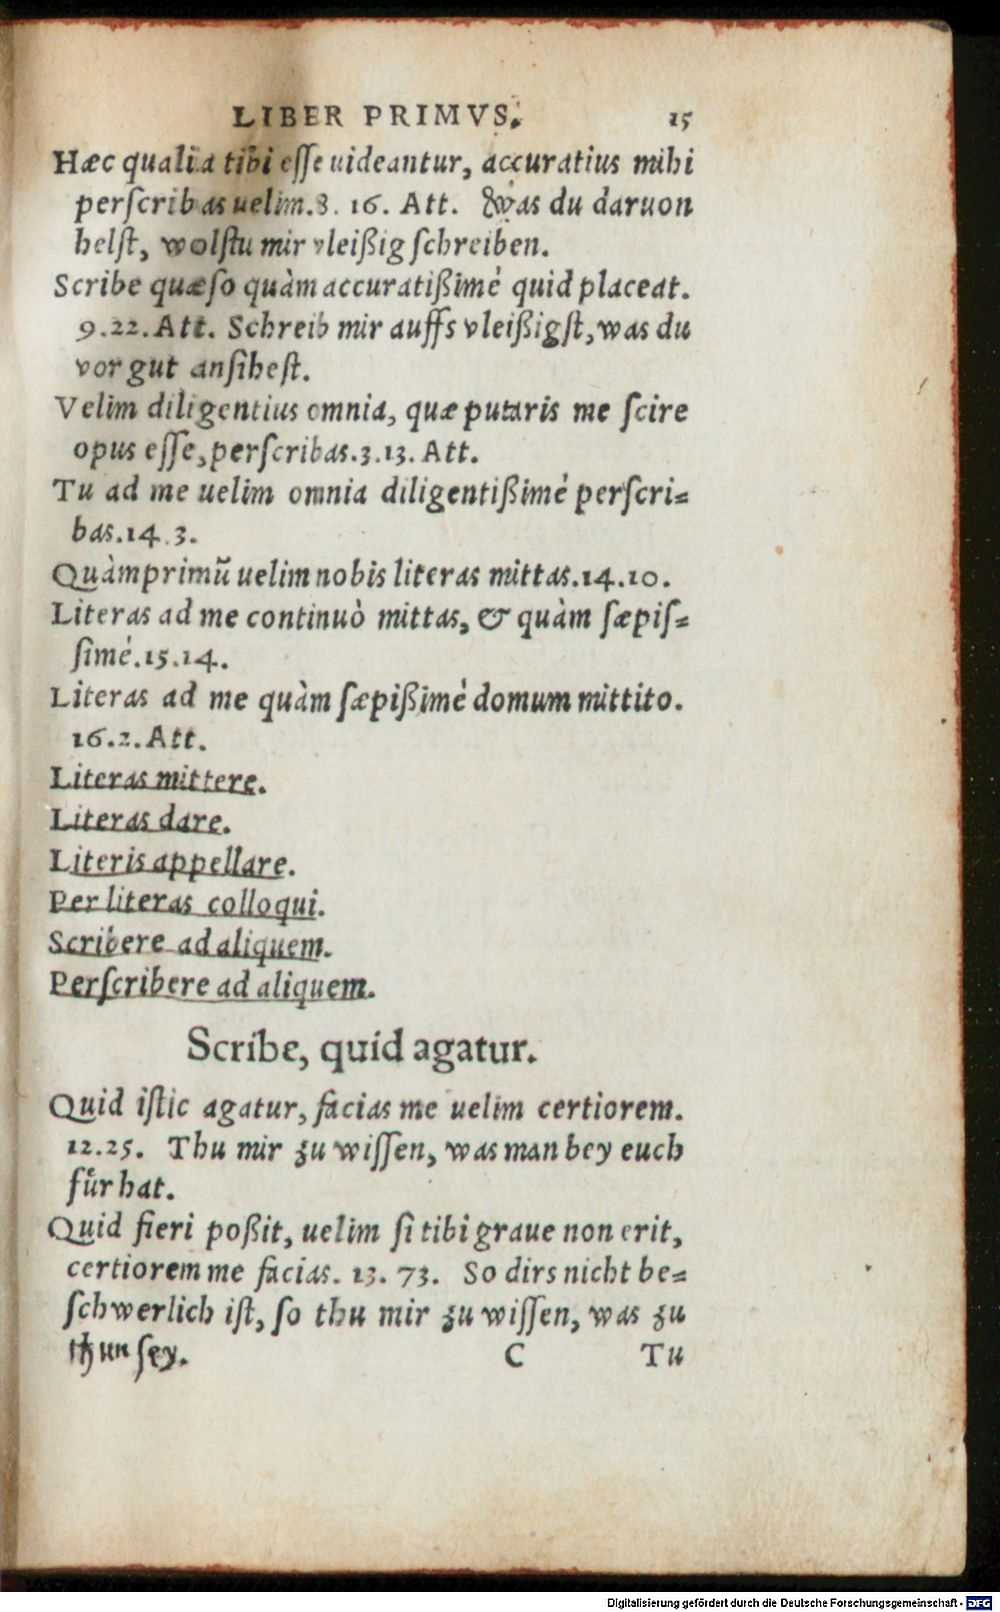 LIBER PRIMVS. 15
Hæc qualia tibi esse uideantur, accuratius mihi
perscribas uelim.8. 16. Att. Was du daruon
helst, wolstu mir vleißig schreiben.
Scribe quæso quàm accuratißimè quid placeat.
9.22. Att. Schreib mir auffs vleißigst, was du
vor gut ansihest.
Velim diligentius omnia, quæ putaris me scire
opus esse, perscribas.3.13. Att.
Tu ad me uelim omnia diligentißimè perscri=
bas.14.3.
Quàmprimũ uelim nobis literas mittas.14.10.
Literas ad me continuò mittas, & quàm sæpis=
simè.15.14.
Literas ad me quàm sæpißimè domum mittito.
16.2. Att.
Literas mittere.
Literas dare.
Literis appellare.
Per literas colloqui.
Scribere ad aliquem.
Perscribere ad aliquem.
Scribe, quid agatur.
Quid istic agatur, facias me uelim certiorem.
12.25. Thu mir zu wissen, was man bey euch
für hat.
Quid fieri poßit, uelim si tibi graue non erit,
certiorem me facias. 13. 73. So dirs nicht be=
schwerlich ist, so thu mir zu wissen, was zu
thun sey. C Tu
Digitalisierung gefördert durch die Deutsche Forschungsgemeinschaft - DFG